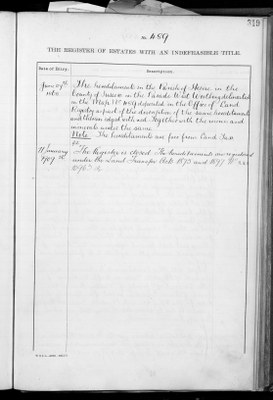 319
No. 489
THE REGISTER OF ESTATES WITH AN INDEFEASIBLE TITLE.
Date of Entry.
Description.
The hereditaments in the Parish of Heene in the
County of Sussex in the Parade West Worthing delineated
in the Map No. 489 deposited in the Office of Land
Registry as part of the description of the same hereditaments
and thereon edged with red Together with the mines and
minerals under the same
Note. The hereditaments are free from Land Tax
11 January
1909
The Register is closed. The hereditaments are registered
under the Land Transfer Acts 1875 and 1897